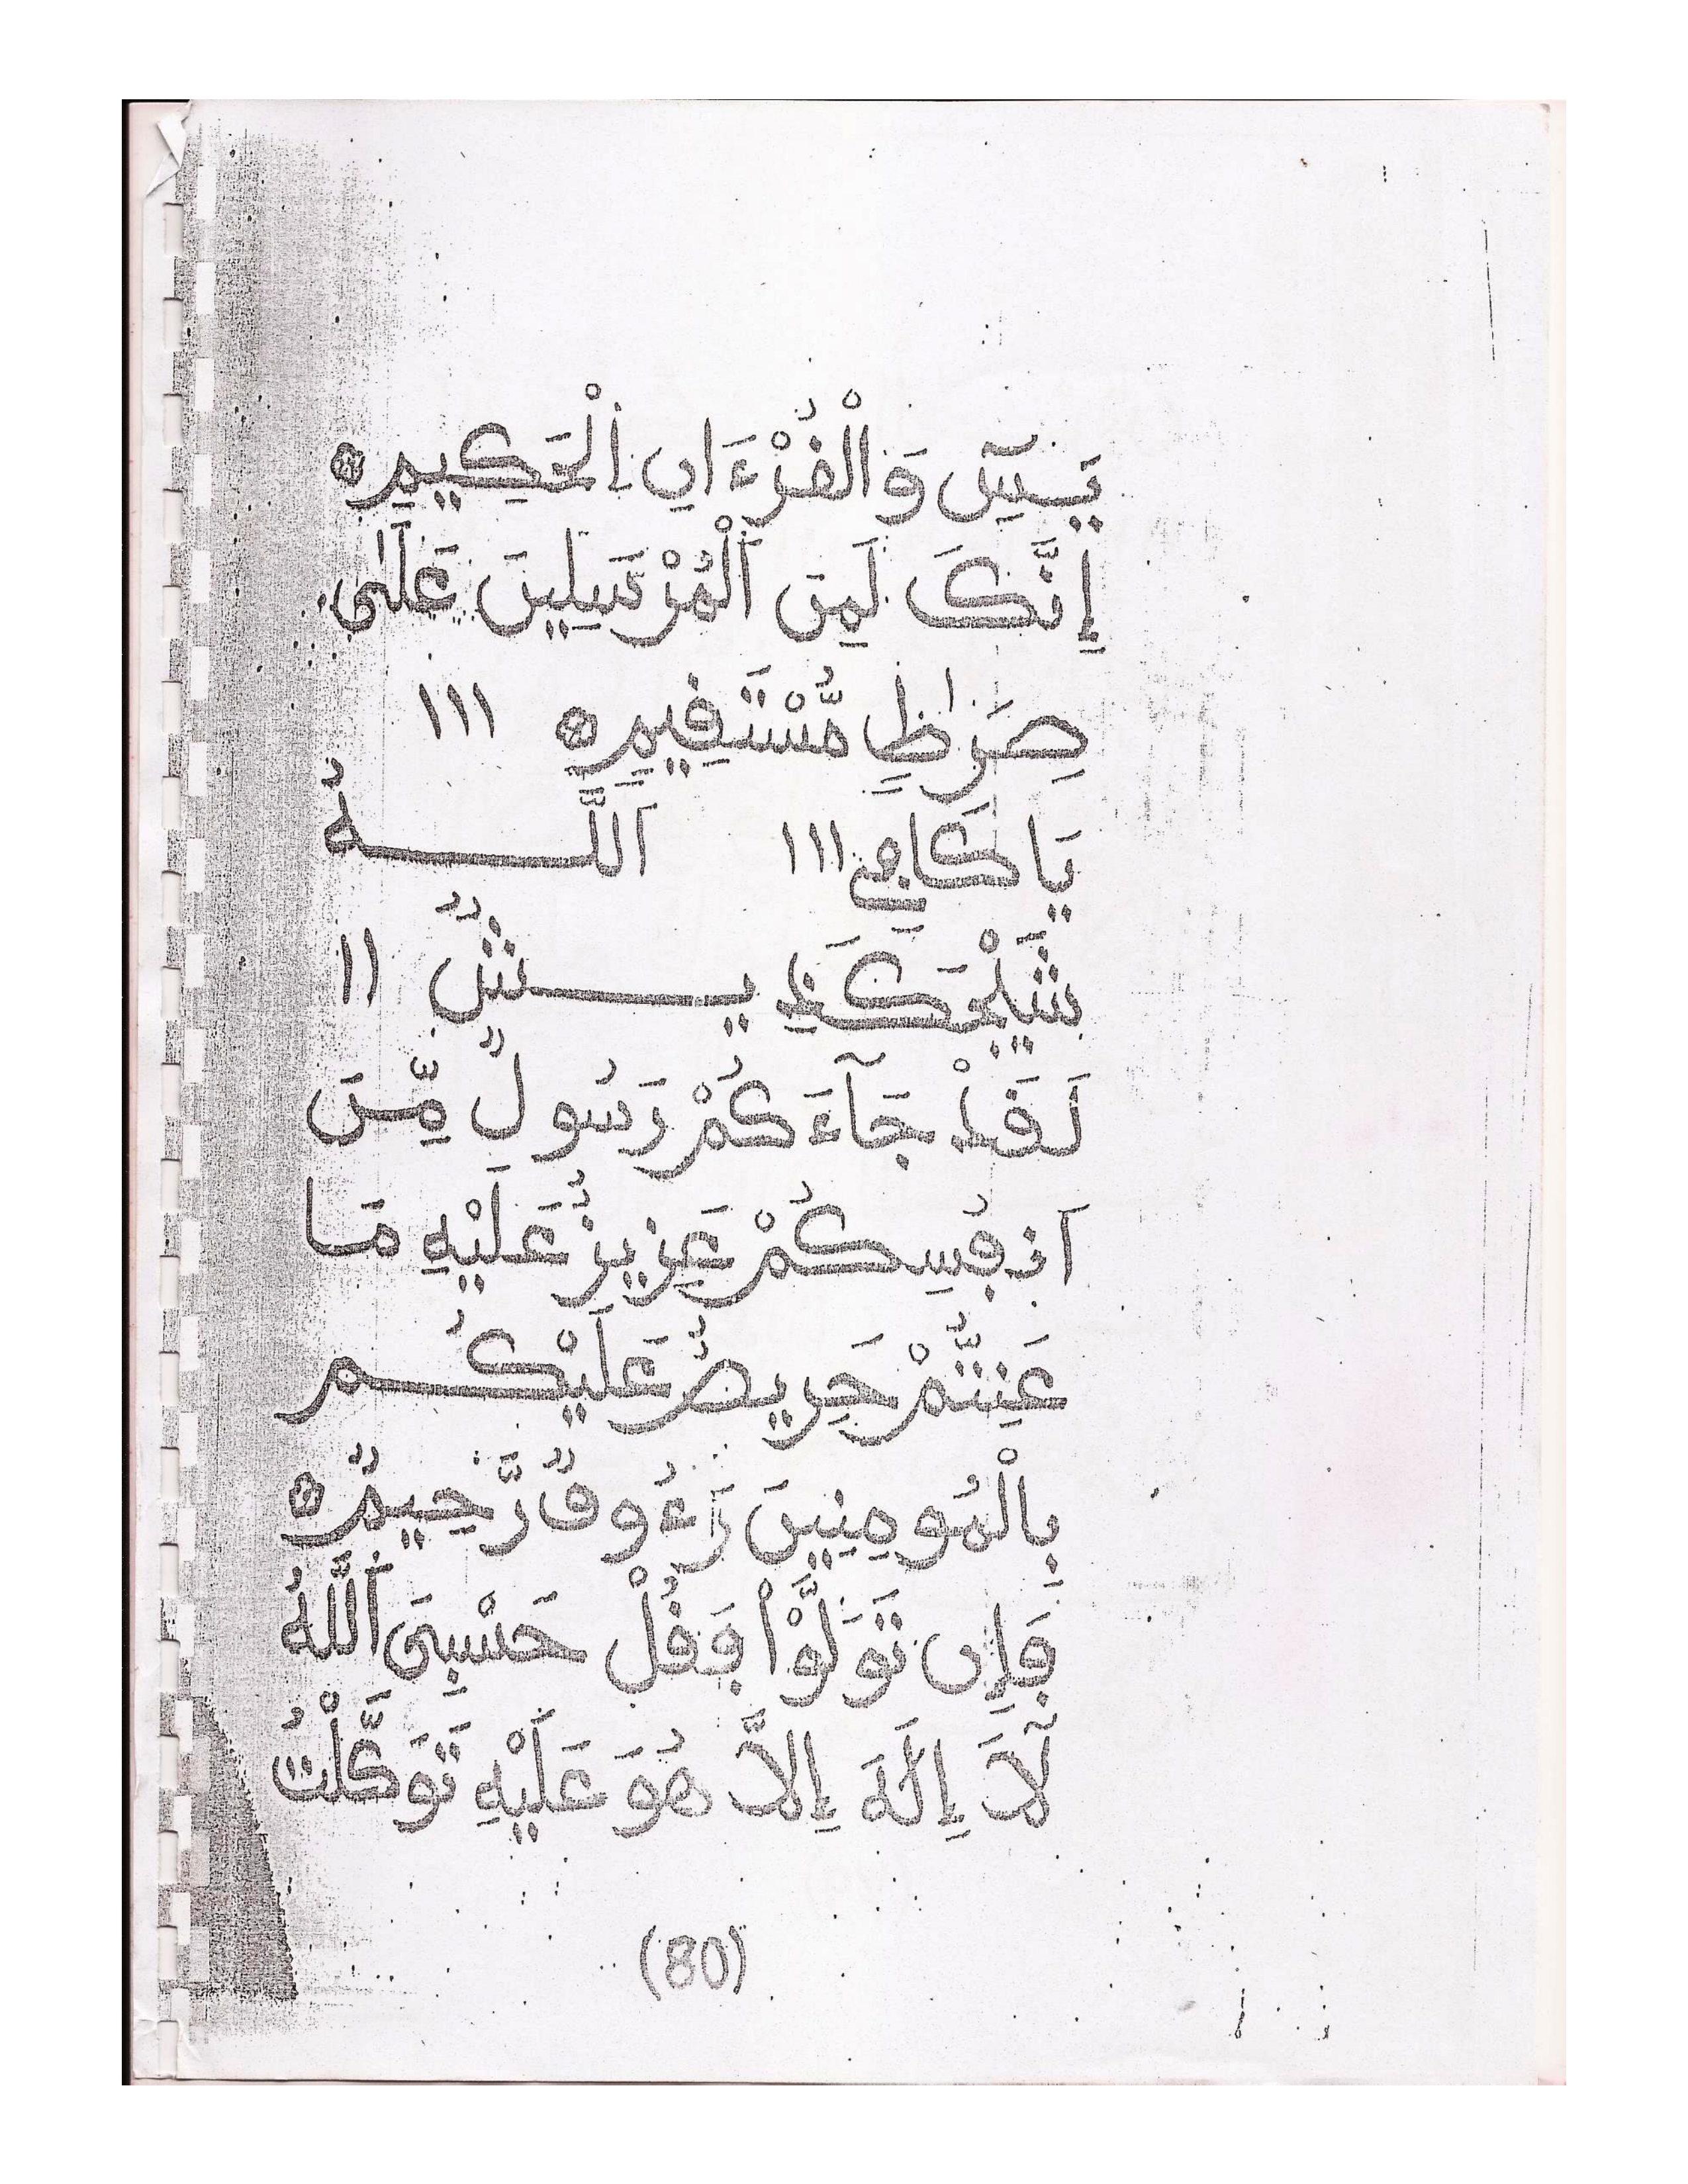 يَسِٓ وَالْفُرْءَانِ اِلْحَكِيمِ
إِنَّكَ لَمِنَ اَلْمُرْسَلِينَ عَلَىٰ
صِرَٰطٍ مُّسْتَقِيمٍ ١١١
يَا كَافِي ١١١ اَللَّهُ
١١
لَقَدْ جَآءَكُمْ رَسُولٌ مِّنَ
اَنفُسِكُمْ عَزِيزٌ عَلَيْهِ مَا
عَنِتُّمْ حَرِيصٌ عَلَيْكُم
بِالْمُومِنِينَ رَءُوفٌ رَّحِيمٌ
فَإِن تَوَلَّوْا فَقُلْ حَسْبِيَ اَللَّهُ
لَآ إِلَٰهَ إِلَّا هُوَ عَلَيْهِ تَوَكَّلْتُ
(80)